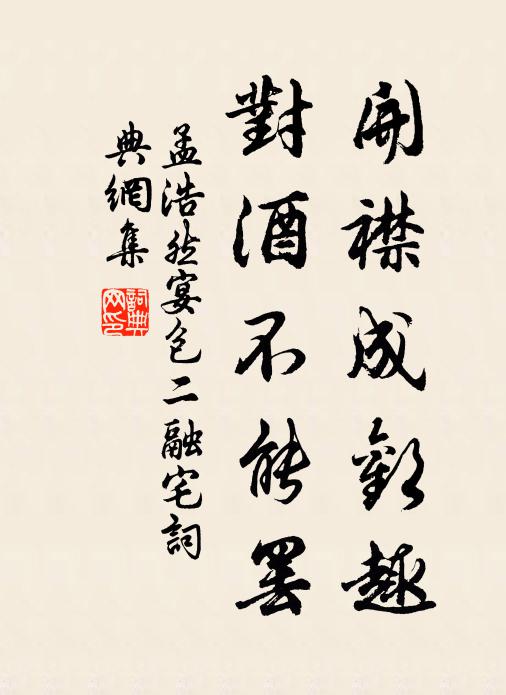 開襟成歡趣
對酒不能罷
孟浩然宴包二融宅詞
典網集
詞典网印